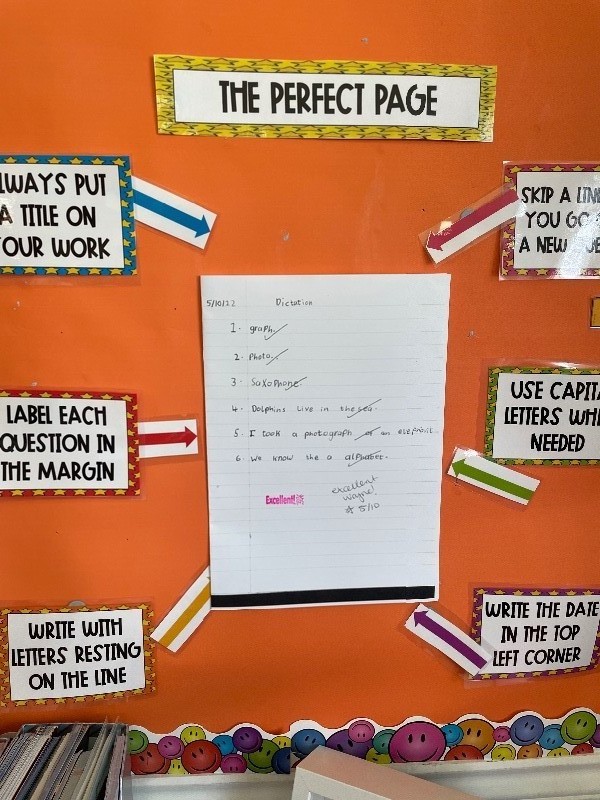 THE PERFECT PAGE
LWAYS PUT
A TITLE ON
OUR WORK
SKIP A LINE
YOU GO
A NEW
5/10/22 Dictation
1. graph.
2. Photo.
3. Saxophone.
4. Dolphins live in the sea.
5. I took a photograph of an
6. We know the a alphabet.
Excellent!
excellent
wayne!
5/10
LABEL EACH
QUESTION IN
THE MARGIN
USE CAPITA
LETTERS WHE
NEEDED
WRITE WITH
LETTERS RESTING
ON THE LINE
WRITE THE DATE
IN THE TOP
LEFT CORNER